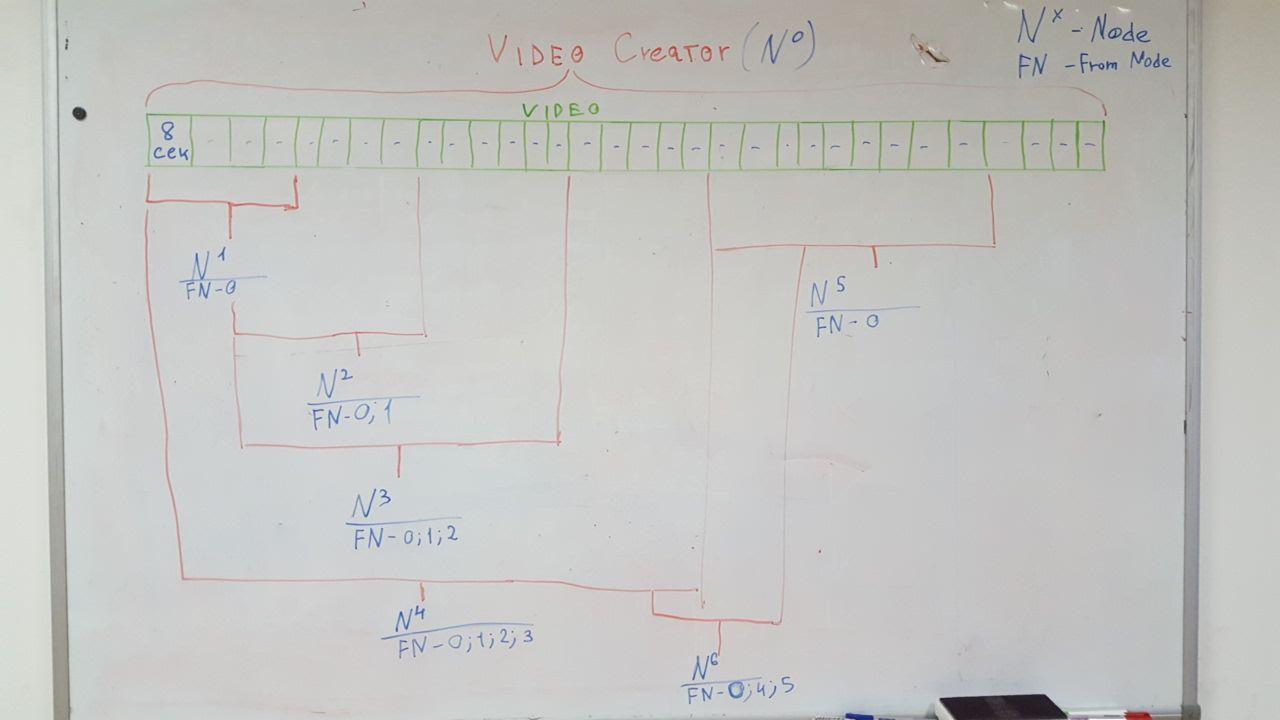 VIDEO Creator (N⁰)
Nˣ - Node
FN - From Node
VIDEO
8
сек
N¹
FN-0
N⁵
FN-0
N²
FN-0;1
N³
FN-0;1;2
N⁴
FN-0;1;2;3
N⁶
FN-0;4;5